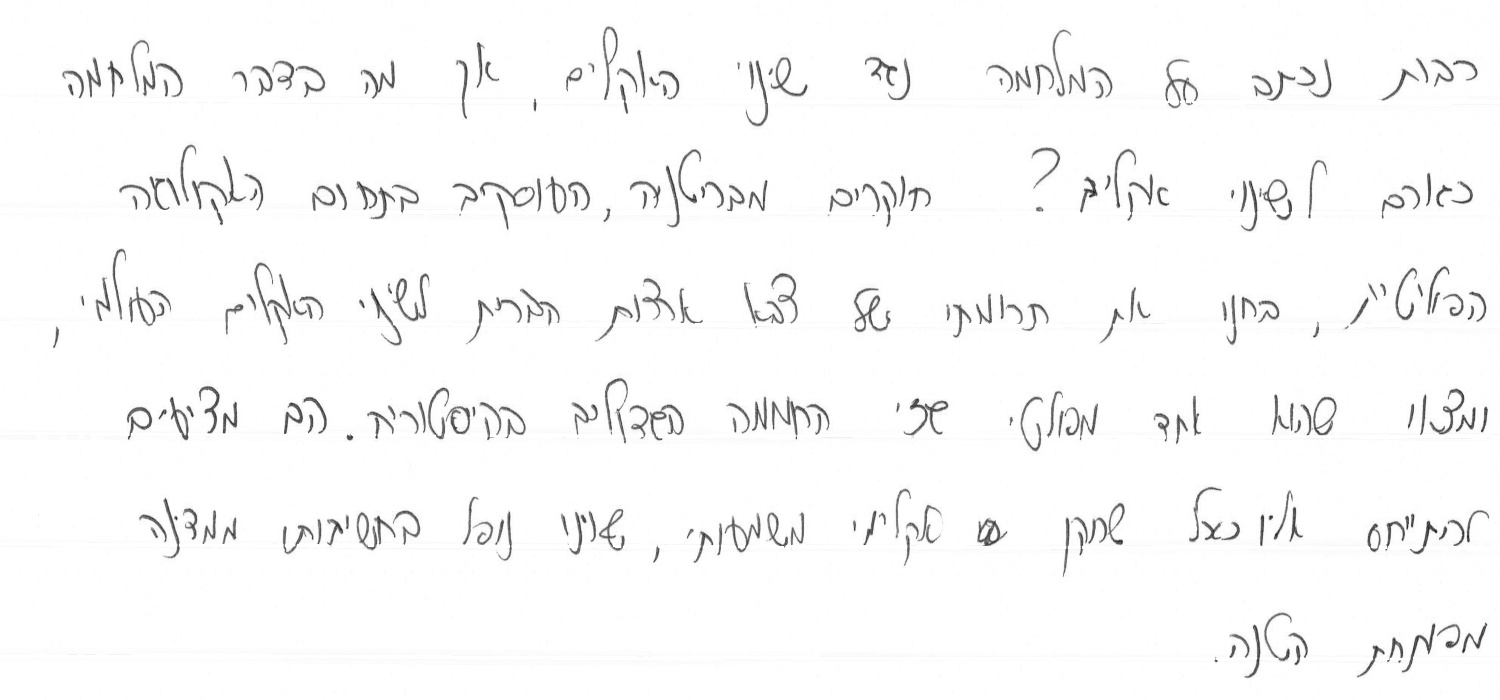 רבות נכתב על המלחמה נגד שינוי האקלים, אך מה בדבר המלחמה
כגורם לשינוי אקלים? חוקרים מבריטניה, העוסקים בתחום האקולוגיה
הפוליטית, בחנו את תרומתו של צבא ארצות הברית לשינוי האקלים העולמי,
ומצאו שהוא אחד מפולטי גזי החממה הגדולים בהיסטוריה. הם מציעים
להתייחס אליו כאל שחקן אקלימי משמעותי, שאינו נופל בחשיבותו ממדינה
מפותחת קטנה.